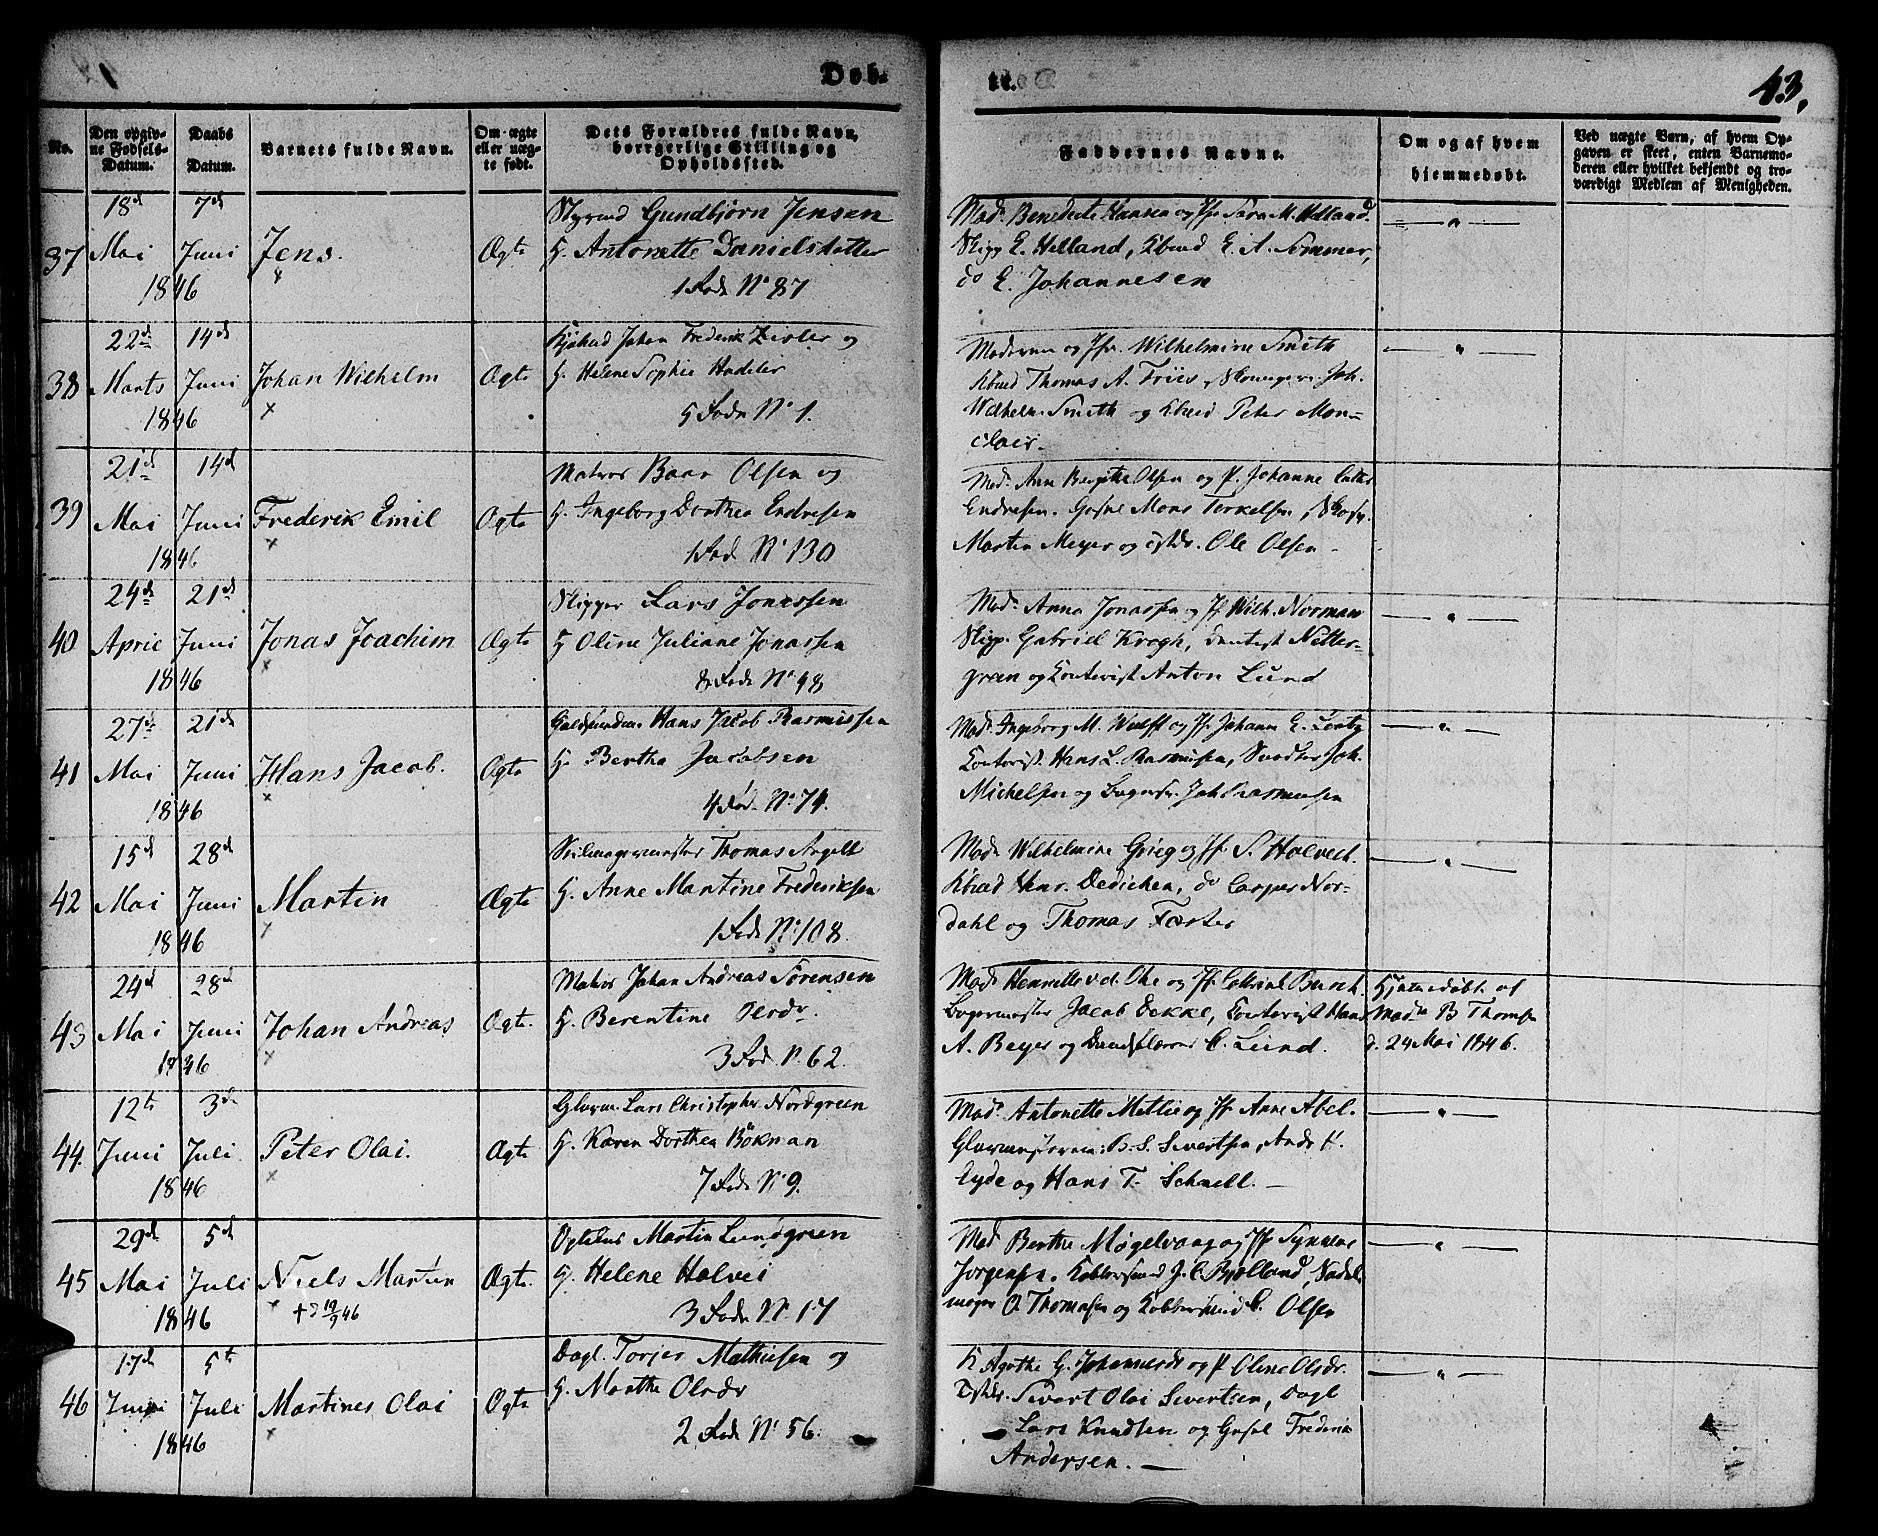 Døb-
te.
43,
No.
Den opgiv-
ne Fødsels-
Datum.
Daabs
Datum.
Barnets fulde Navn.
Om ægte
eller uæg-
te født.
Dets Forældres fulde Navn,
borgerlige Stilling og
Opholdssted.
Faddernes Navne.
Om og af hvem
hjemmedøbt.
Ved uægte Børn, af hvem Op-
gaven er skeet, enten Barnemo-
deren eller hvilket bekjendt og tro-
værdigt Medlem af Menigheden.
37
18d
Mai
1846
7d
Juni
Jens.
Ægte
Styrmd Gundbjørn Jensen
H. Antonette Danielsdatter
1 Fode No 87
Mad. Benedicte Hansen og Jfr Sara M. Helland.
Skipp E. Helland, Kbmd E. A. Sommer,
do E. Johannesen
38
22d
Marts
1846
14d
Juni
Johan Wilhelm
Ægte
Kjøbmd Johan Frederik Zisler og
H. Helene Sophie Hadeler
5 Fode No 1.
Moderen og Jfr. Wilhelmine Smith
Kbmd Thomas A. Friis, Joh.
Wilhelm Smith og Kbmd Peter Mon-
clair.
39
21d
Mai
1846
14d
Juni
Frederik Emil
Ægte
Matros Baar Olsen og
H. Ingeborg Dorthea Endresen
1 Fod. No 130
Mad. Ane Bergitte Olsen og P. Johanne
Endresen. Mons Terkelsen,
Martin Meyer og Ole Olsen
40
24d
April
1846
21d
Juni
Jonas Joachim
Ægte
Skipper Lars Jonassen
H Oline Juliane Jonassen
8 Fode No 48
Mad. Anna Jonassen og Jf Wilh. Norman
Skipp. Gabriel Krogh, Netter-
green og Contorist Anton Lund
41
27d
Mai
1846
21d
Juni
Hans Jacob.
Ægte
Hans Jacob Rasmussen
H. Bertha Jacobsen
4 Fod. No 74.
Mad. Ingeborg M. Wulff og Jfr Johanne E.
Contorist. Hans L. Rasmussen, Joh.
Michelsen og Joh Rasmussen
42
15d
Mai
1846
28d
Juni
Martin
Ægte
Thomas Angelt
H. Anne Martine Frederiksen
1 Fode No 108.
Mad. Wilhelmine Grieg og Jf. S. Halveck.
Kbmd Henr. Dedichen, do Casper Nor-
dahl og Thomas Forster
43
24d
Mai
1846
28d
Juni
Johan Andreas
Ægte.
Matros Johan Andreas Sørensen
H. Berentine Olsdr.
3 Fod No 62.
Mad. Henriette v. d. Ohe og Jf.
Bagermester Jacob Dekke, Contorist Hans
A. Beyer og C. Lund.
Hjemmedøbt af
Mad. B Thomsen
d. 24 Mai 1846.
44.
12te
Juni
1846
3d
Juli
Peter Olai.
Ægte
Glarm. Lars Christopher Nordgreen
H. Karen Dorthea Bökman
7 Fode No 9.
Mad. Antonette Meltie og Jfr Anne Abel.
B. S. Sivertsen, Andr H.
Eyde og Hans T. Schnell.
45
29d
Mai
1846
5d
Juli
Niels Martin
+ 19/9 46
Ægte.
Martin Lundgreen
H. Helene Halvei
3 Fode No. 17
Mad Berthe Møgelvang og Jfr Synneve
Jørgensen. J. C. Bjelland,
O Thomsen og C. Olsen
46
17d
Juni
1846
5te
Juli
Martines Olai
Ægte
Dagl. Torjer Mathiesen og
H. Marthe Olsdr
2 Fode No 56.
K Agathe G. Johannesdr og P Oline Olsdr.
Sivert Olai Sivertsen, Dagl
Lars Knudsen og Frederik
Andersen.